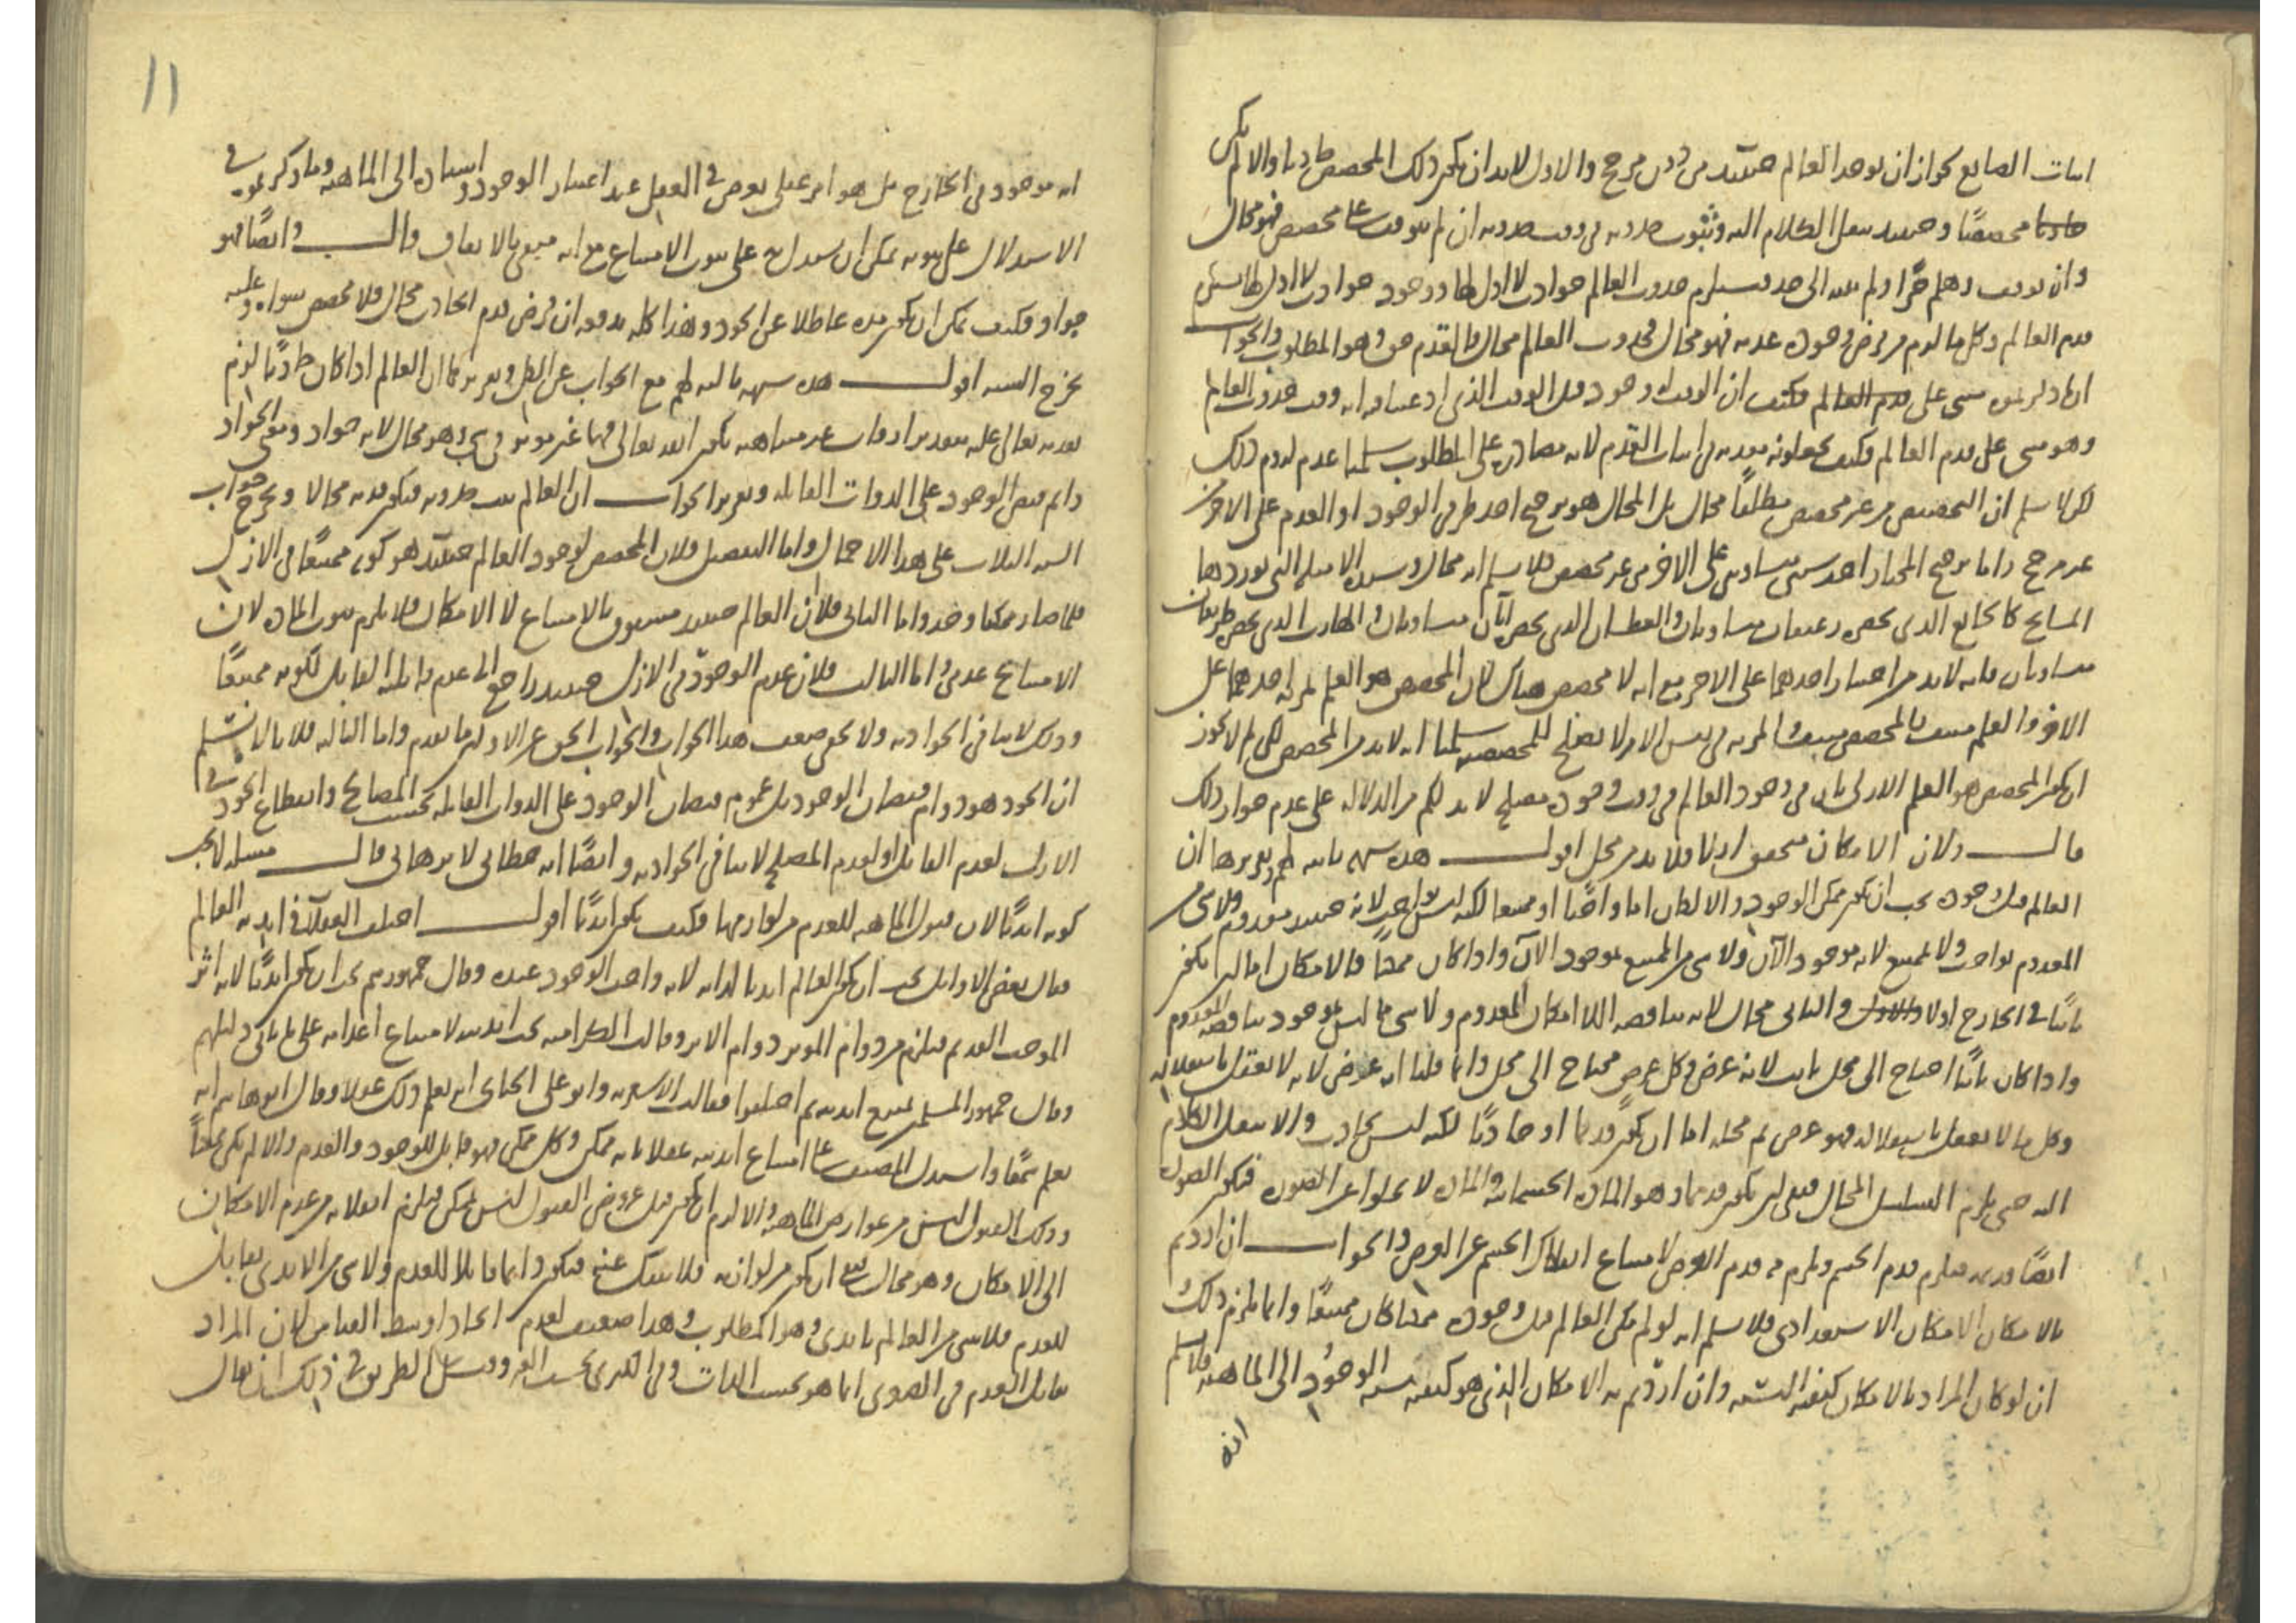 اثبات الصانع لجواز ان يوجد العالم حينئذ من دون مرجح والاول لابد ان يكون ذلك المخصص حادثا والا لم يكن
حادثا مخصصا وحينئذ ينقل الكلام اليه وثبوت حدوثه في وقت حدوثه ان لم يتوقف على مخصص فهو محال
وان توقف وهلم جرا ولم ينته الى حد فيستلزم حدوث العالم حوادث لا اول لها ووجود حوادث لا اول لها يستلزم
قدم العالم وكل ما لزم من فرض وجوده عدمه فهو محال فحدوث العالم محال فالقدم حق وهو المطلوب والجواب
ان الوقت وجود قبل الوقت الذي ادعينا فيه انه وقت حدوث العالم
وهو مبنى على قدم العالم فكيف يجعلونه مقدمة في اثبات القدم لانه مصادرة على المطلوب سلمنا عدم لزوم ذلك
لكن لا نسلم ان التخصيص من غير مخصص مطلقا محال بل المحال هو ترجيح احد طرفي الوجود او العدم على الاخر من
غير مرجح واما ترجيح المختار احد شيئين متساويين على الاخر من غير مخصص فلا نسلم انه محال وسنده الامثلة التي يوردها
المشايخ كالجايع الذي يحضره رغيفان متساويان والعطشان الذي يحضره اناآن متساويان والهارب الذي يحضره طريقان
متساويان فانه لابد من اختيار احدهما على الاخر مع انه لا مخصص هناك لان المخصص هو العلم بمزية احدهما على
الاخر والعلم بالمزية في نفس الامر لا يصلح للمخصصية سلمنا انه لابد من المخصص لكن لم لا يجوز
ان يكون المخصص هو العلم الازلي بان في وجود العالم في وقت وجوده مصلحة لابد لكم من الدلالة على عدم جواز ذلك
قال ولان الامكان متحقق ازلا فلابد من محل اقول هذه شبهة ثانية لهم وتقريرها ان
العالم قبل وجوده يجب ان يكون ممكن الوجود والا لكان اما واجبا او ممتنعا لكنه ليس بواجب لانه حينئذ معدوم ولا شئ من
المعدوم بواجب ولا بممتنع لانه موجود الآن ولا شئ من الممتنع بموجود الآن واذا كان ممكنا فالامكان اما ان يكون
ثابتا في الخارج اولا والثاني محال لانه يناقضه اللا امكان المعدوم ولا شئ مما ليس بموجود يناقضه المعدوم
واذا كان ثابتا احتاج الى محل ثابت لانه عرض وكل عرض محتاج الى محل وانما قلنا انه عرض لانه لا يعقل باستقلاله
وكل ما لا يعقل باستقلاله فهو عرض ثم محله اما ان يكون قديما او حادثا لكنه ليس بحادث والا لنقل الكلام
اليه حتى يلزم التسلسل المحال فبقى ان يكون قديما وهو المادة الجسمانية والمادة لا يخلوا عن الصورة فيكون الصورة
ايضا قديمة فيلزم قدم الجسم ويلزم منه قدم العرض لامتناع انفكاك الجسم عن العرض والجواب ان اردتم
بالامكان الامكان الاستعدادي فلا نسلم انه لو لم يكن العالم قبل وجوده ممكنا كان ممتنعا وانما يلزم ذلك
ان لو كان المراد بالامكان كيفية النسبة وان اردتم به الامكان الذي هو كيفية نسبة الوجود الى الماهية فلا نسلم
انه
١١
انه موجود في الخارج بل هو امر عقلي يعرض في العقل عند اعتبار الوجود واسناده الى الماهية وما ذكرتموه في
الاستدلال على ثبوته يمكن ان يستدل به على ثبوت الامتناع مع انه منفى بالاتفاق قال وايضا فهو
جواد فكيف يمكن ان يكون مدة عاطلا عن الجود وهذا كله يدفعه ان فرض قدم الحادث محال فلا مخصص سواه وعليه
يخرج الشبه اقول هذه شبهة ثالثة لهم مع الجواب عن الكل وتقريرها ان العالم اذا كان حادثا لزم
تقدمه تعالى عليه بتقدير اوقات غير متناهية يكون الله تعالى فيها غير مؤثر في شئ وهو محال لانه جواد ومبنى الجواد
دائم فيض الوجود على الذوات القابلة وتقرير الجواب ان العالم ثبت حدوثه فيكون قدمه محالا ويخرج جواب
الشبه الثلاث على هذا الاجمال واما التفصيل فلان المخصص لوجود العالم حينئذ هو كونه ممتنعا في الازل
فلما صار ممكنا وجد واما الثاني فلان العالم حينئذ مسبوق بالامتناع لا الامكان فلا يلزم ثبوت المادة لان
الامتناع عدمي واما الثالث فلان عدم الوجود في الازل حينئذ راجع الى عدم قابلية القابل لكونه ممتنعا
وذلك لا ينافي الجوادية ولا يخفى ضعف هذا الجواب والجواب الحق عن الاولين ما تقدم واما الثالثة فلانا لا نسلم
ان الجود هو دوام فيضان الوجود بل عموم فيضان الوجود على الذوات القابلة بحسب المصالح وانقطاع الجود في
الازل لعدم القابل او لعدم المصلحة لا ينافي الجوادية وايضا انه خطابي لا برهاني قال مسئلة لا يجب
كونه ابديا لان قبول الماهية للعدم من لوازمها فكيف يكون ابديا اقول اختلف العقلاء في ابدية العالم
فقال بعض الاوائل يجب ان يكون العالم ابديا لذاته لانه واجب الوجود عنده وقال جمهورهم يجب ان يكون ابديا لانه اثر
الموجب القديم فيلزم من دوام المؤثر دوام الاثر وقالت الكرامية يجب ابديته لامتناع اعدامه على ما ياتي دليلهم
وقال جمهور المسلمين يمتنع ابديته ثم اختلفوا فقالت الاشعرية وابو على الجبائي انه يعلم ذلك عقلا وقال ابو هاشم انه
يعلم سمعا واستدل المصنف على امتناع ابديته عقلا بانه ممكن وكل ممكن فهو قابل للوجود والعدم والا لم يكن ممكنا
وذلك القبول ليس من عوارض الماهية والا لزم ان يكون قبل عروض القبول ليس بممكن فيلزم انقلابه من عدم الامكان
الى الامكان وهو محال فبقى ان يكون من لوازمه فلا ينفك عنه فيكون دائما قابلا للعدم ولا شئ من الابدي بقابل
للعدم فلا شئ من العالم بابدي وهو المطلوب وهذا ضعيف لعدم اتحاد اوسط القياس لان المراد
بقابل العدم في الصغرى انما هو بحسب الذات وفي الكبرى بحسب الغير الطريق في ذلك ان يقال